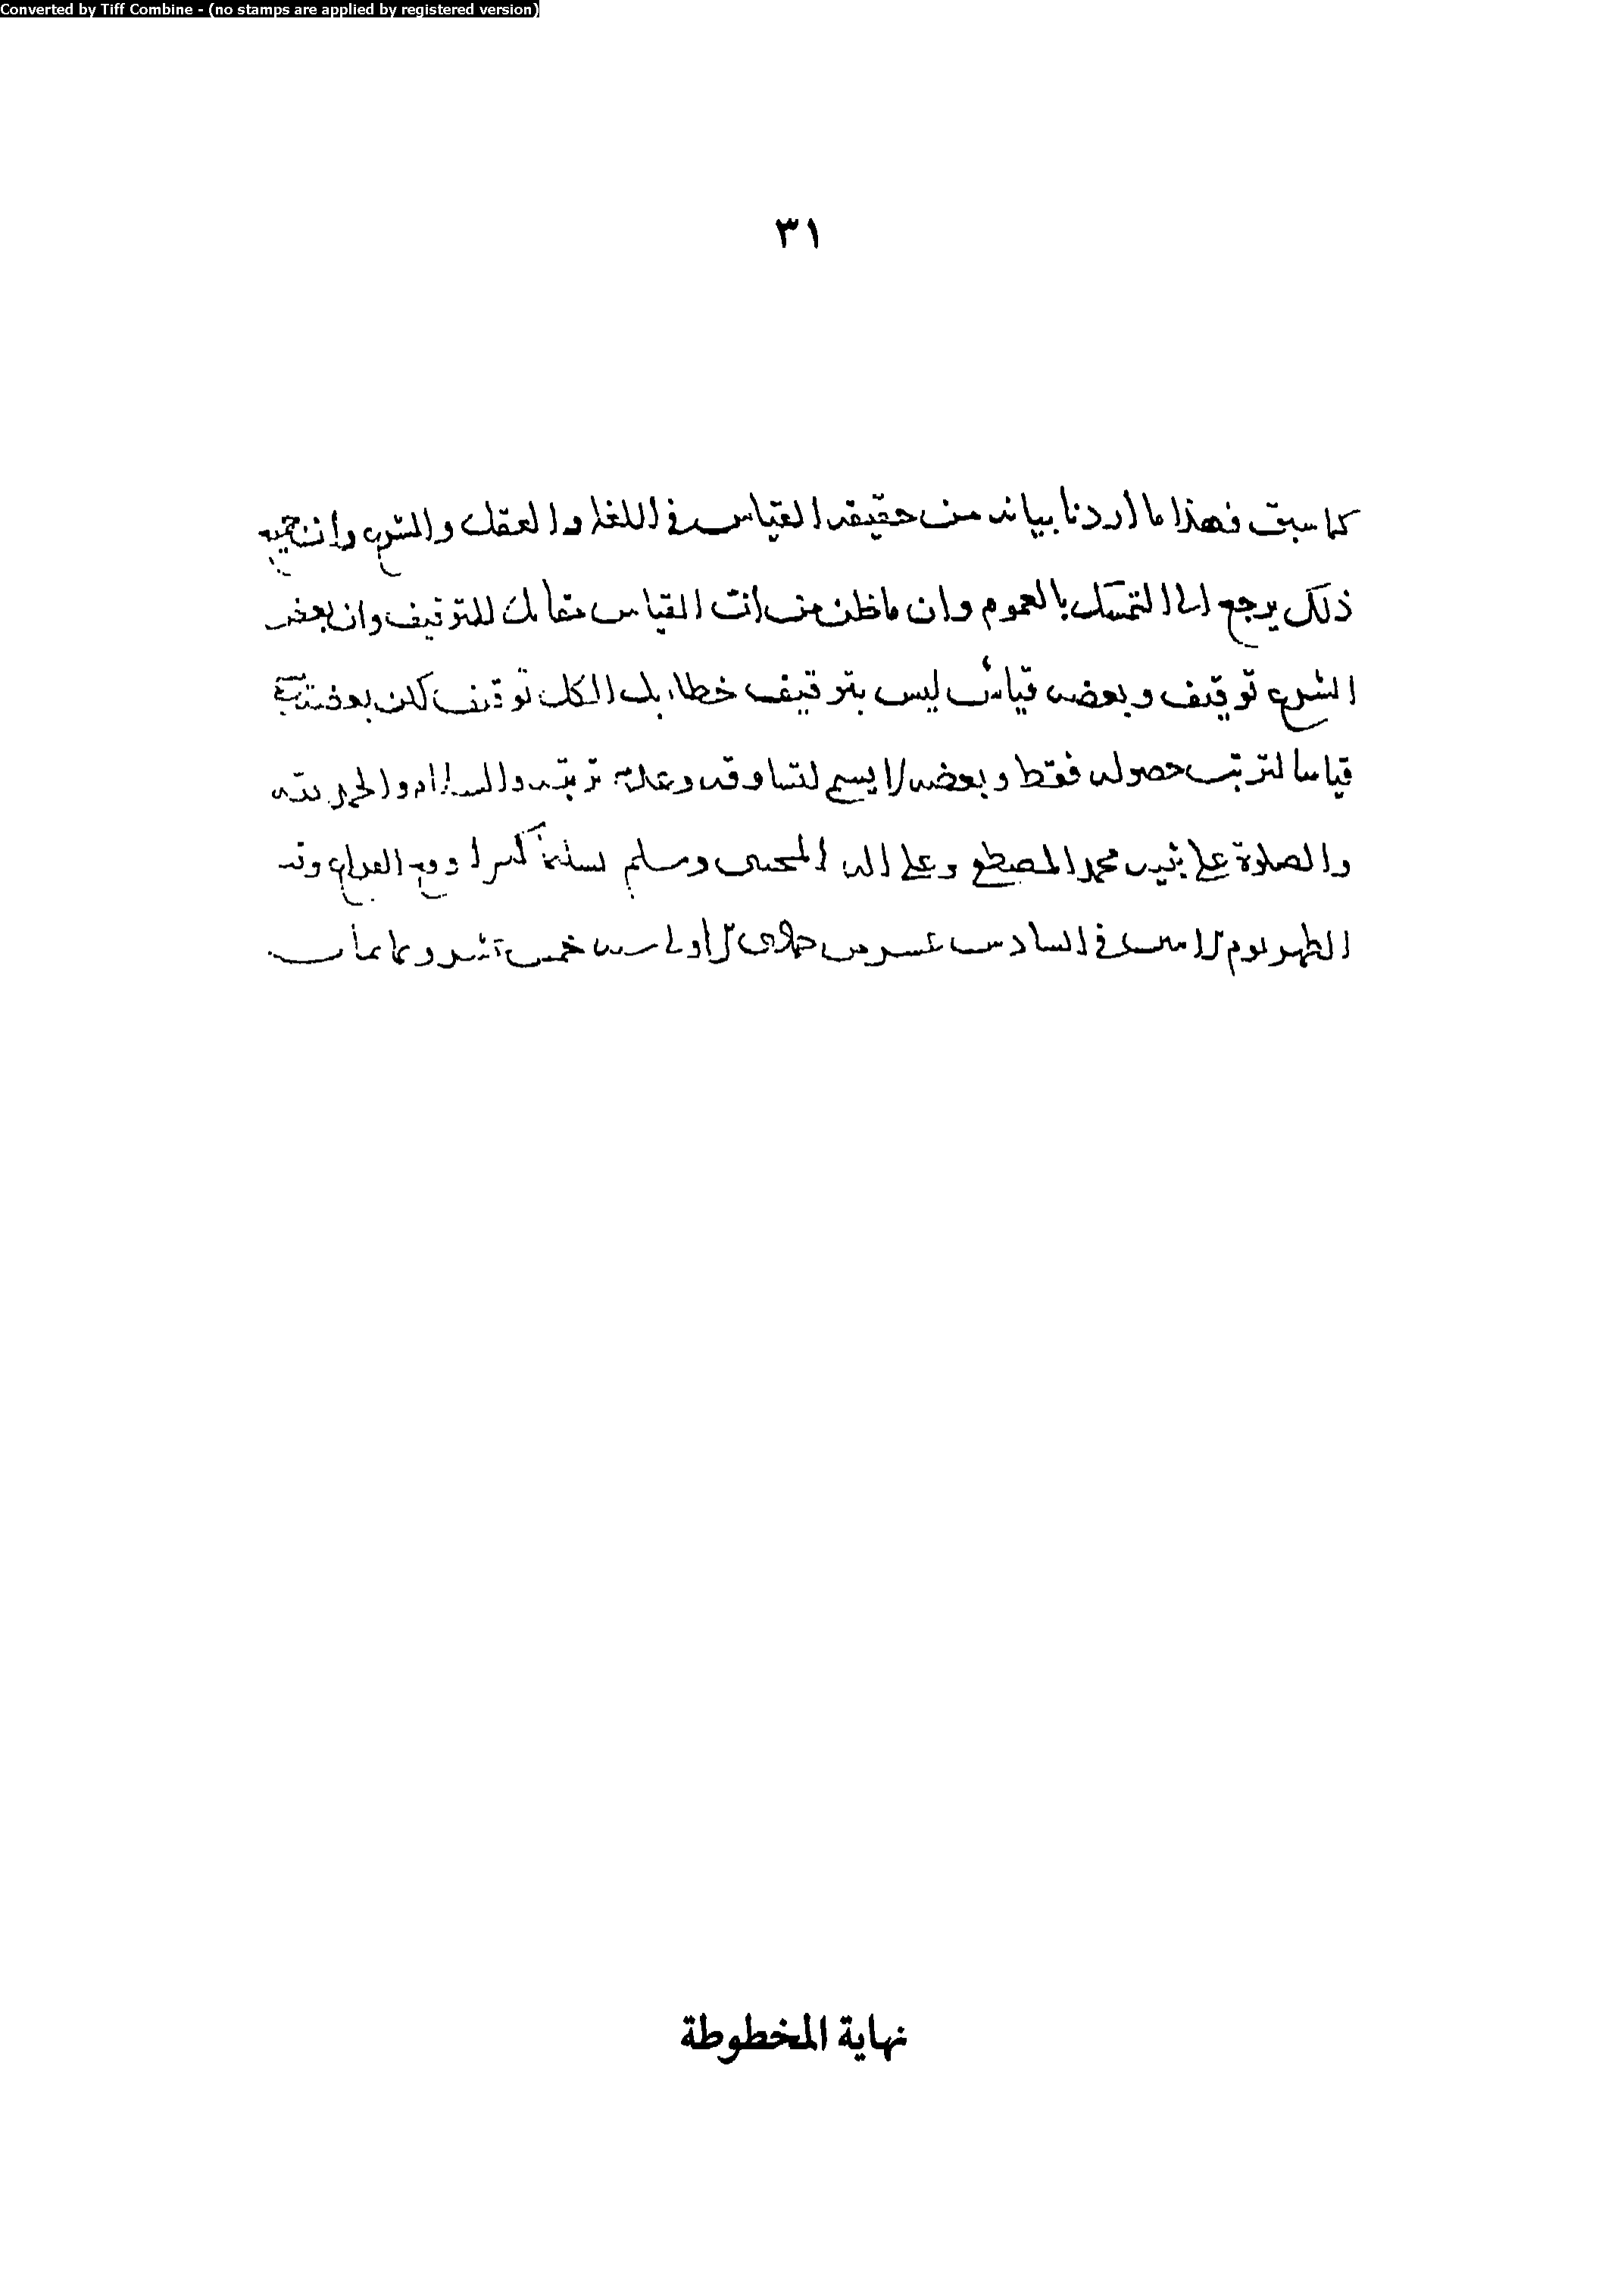 Converted by Tiff Combine - (no stamps are applied by registered version)
٣١
كما سبق فهذا ما اردنا بيانه من حقيقه القياس فى اللغه والعقل والشرع وان جميع
ذلك يرجع الى التمسك بالعموم وان ما ظن من ان القياس مقابل للتوقيف وان بعض
الشرع توقيف وبعضه قياس ليس بتوقيف خطاء بل الكل توقيف لكن بعضه
قياسا لترتب حصوله فقط وبعضه لا يسمى لتساوقه وعدم ترتبه والسلام والحمد لله
والصلوة على نبيه محمد المصطفى وعلى اله المجتبى وسلم تسليما كثيرا ووقع الفراغ وقت
الظهر يوم الاسد فى السادس عشر من جمادى الاولى سنه خمس عشر وثمانمأيه
نهاية المخطوطة